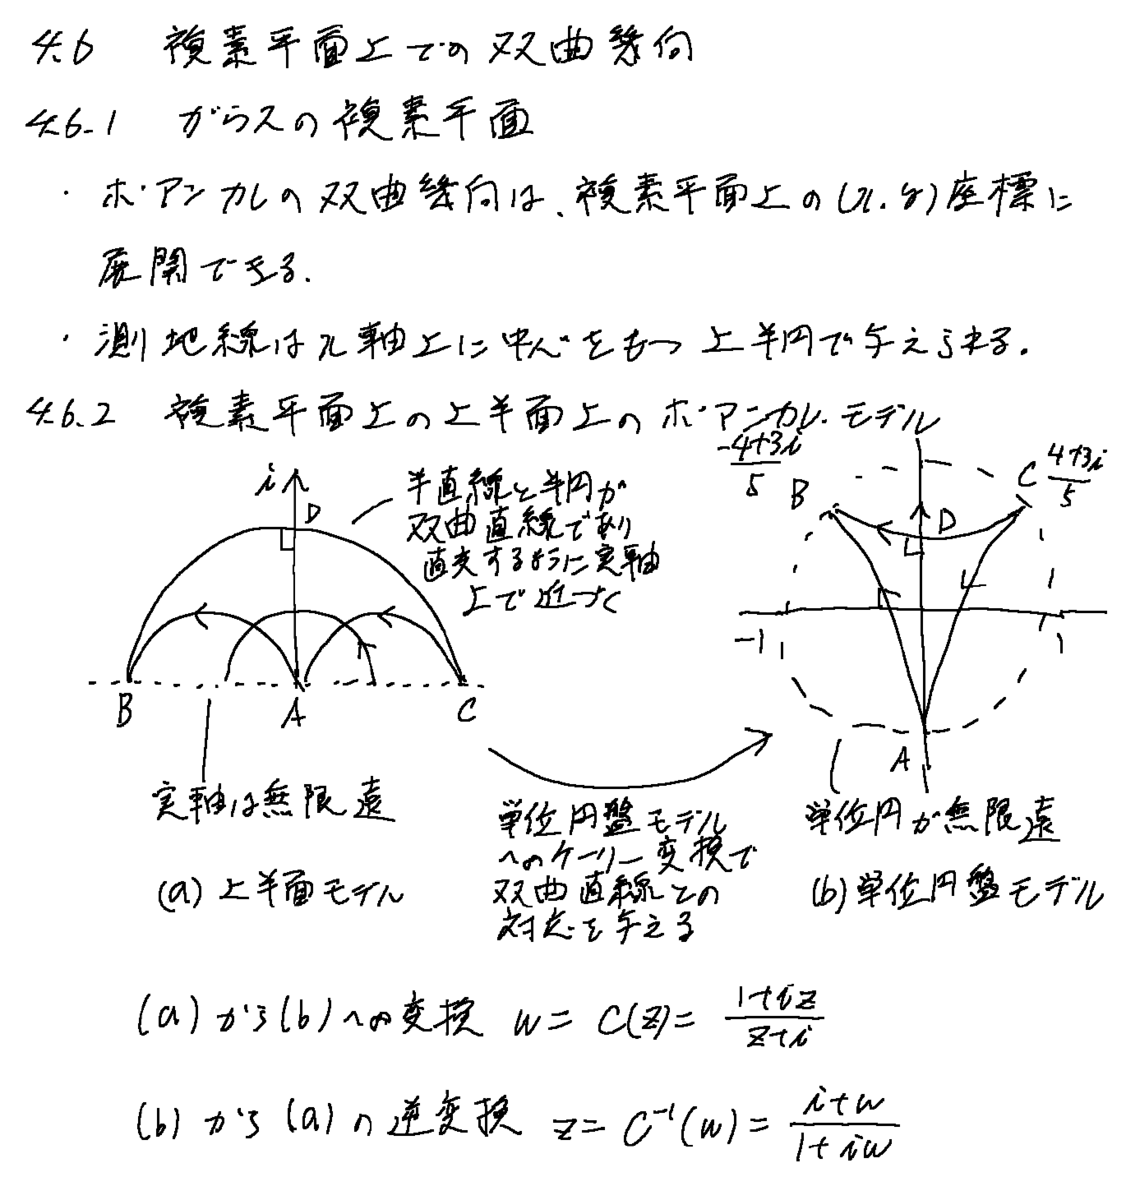 4.6 複素平面上での双曲幾何
4.6.1 ガウスの複素平面
・ポアンカレの双曲幾何は、複素平面上の(x.y)座標に
展開できる.
・測地線はx軸上に中心をもつ上半円で与えられる.
4.6.2 複素平面上の上半面上のポアンカレ・モデル
i
D
半直線と半円が
双曲直線であり
直交するように実軸
上で近づく
B A C
実軸は無限遠
(a) 上半面モデル
単位円盤モデル
へのケーリー変換で
双曲直線との
対応を与える
-4+3i
5
B
C
4+3i
5
D
-1
1
A
単位円が無限遠
(b) 単位円盤モデル
(a)から(b)への変換 w = C(z) = \frac{1+iz}{z+i}
(b)から(a)の逆変換 z = C^{-1}(w) = \frac{i+w}{1+iw}